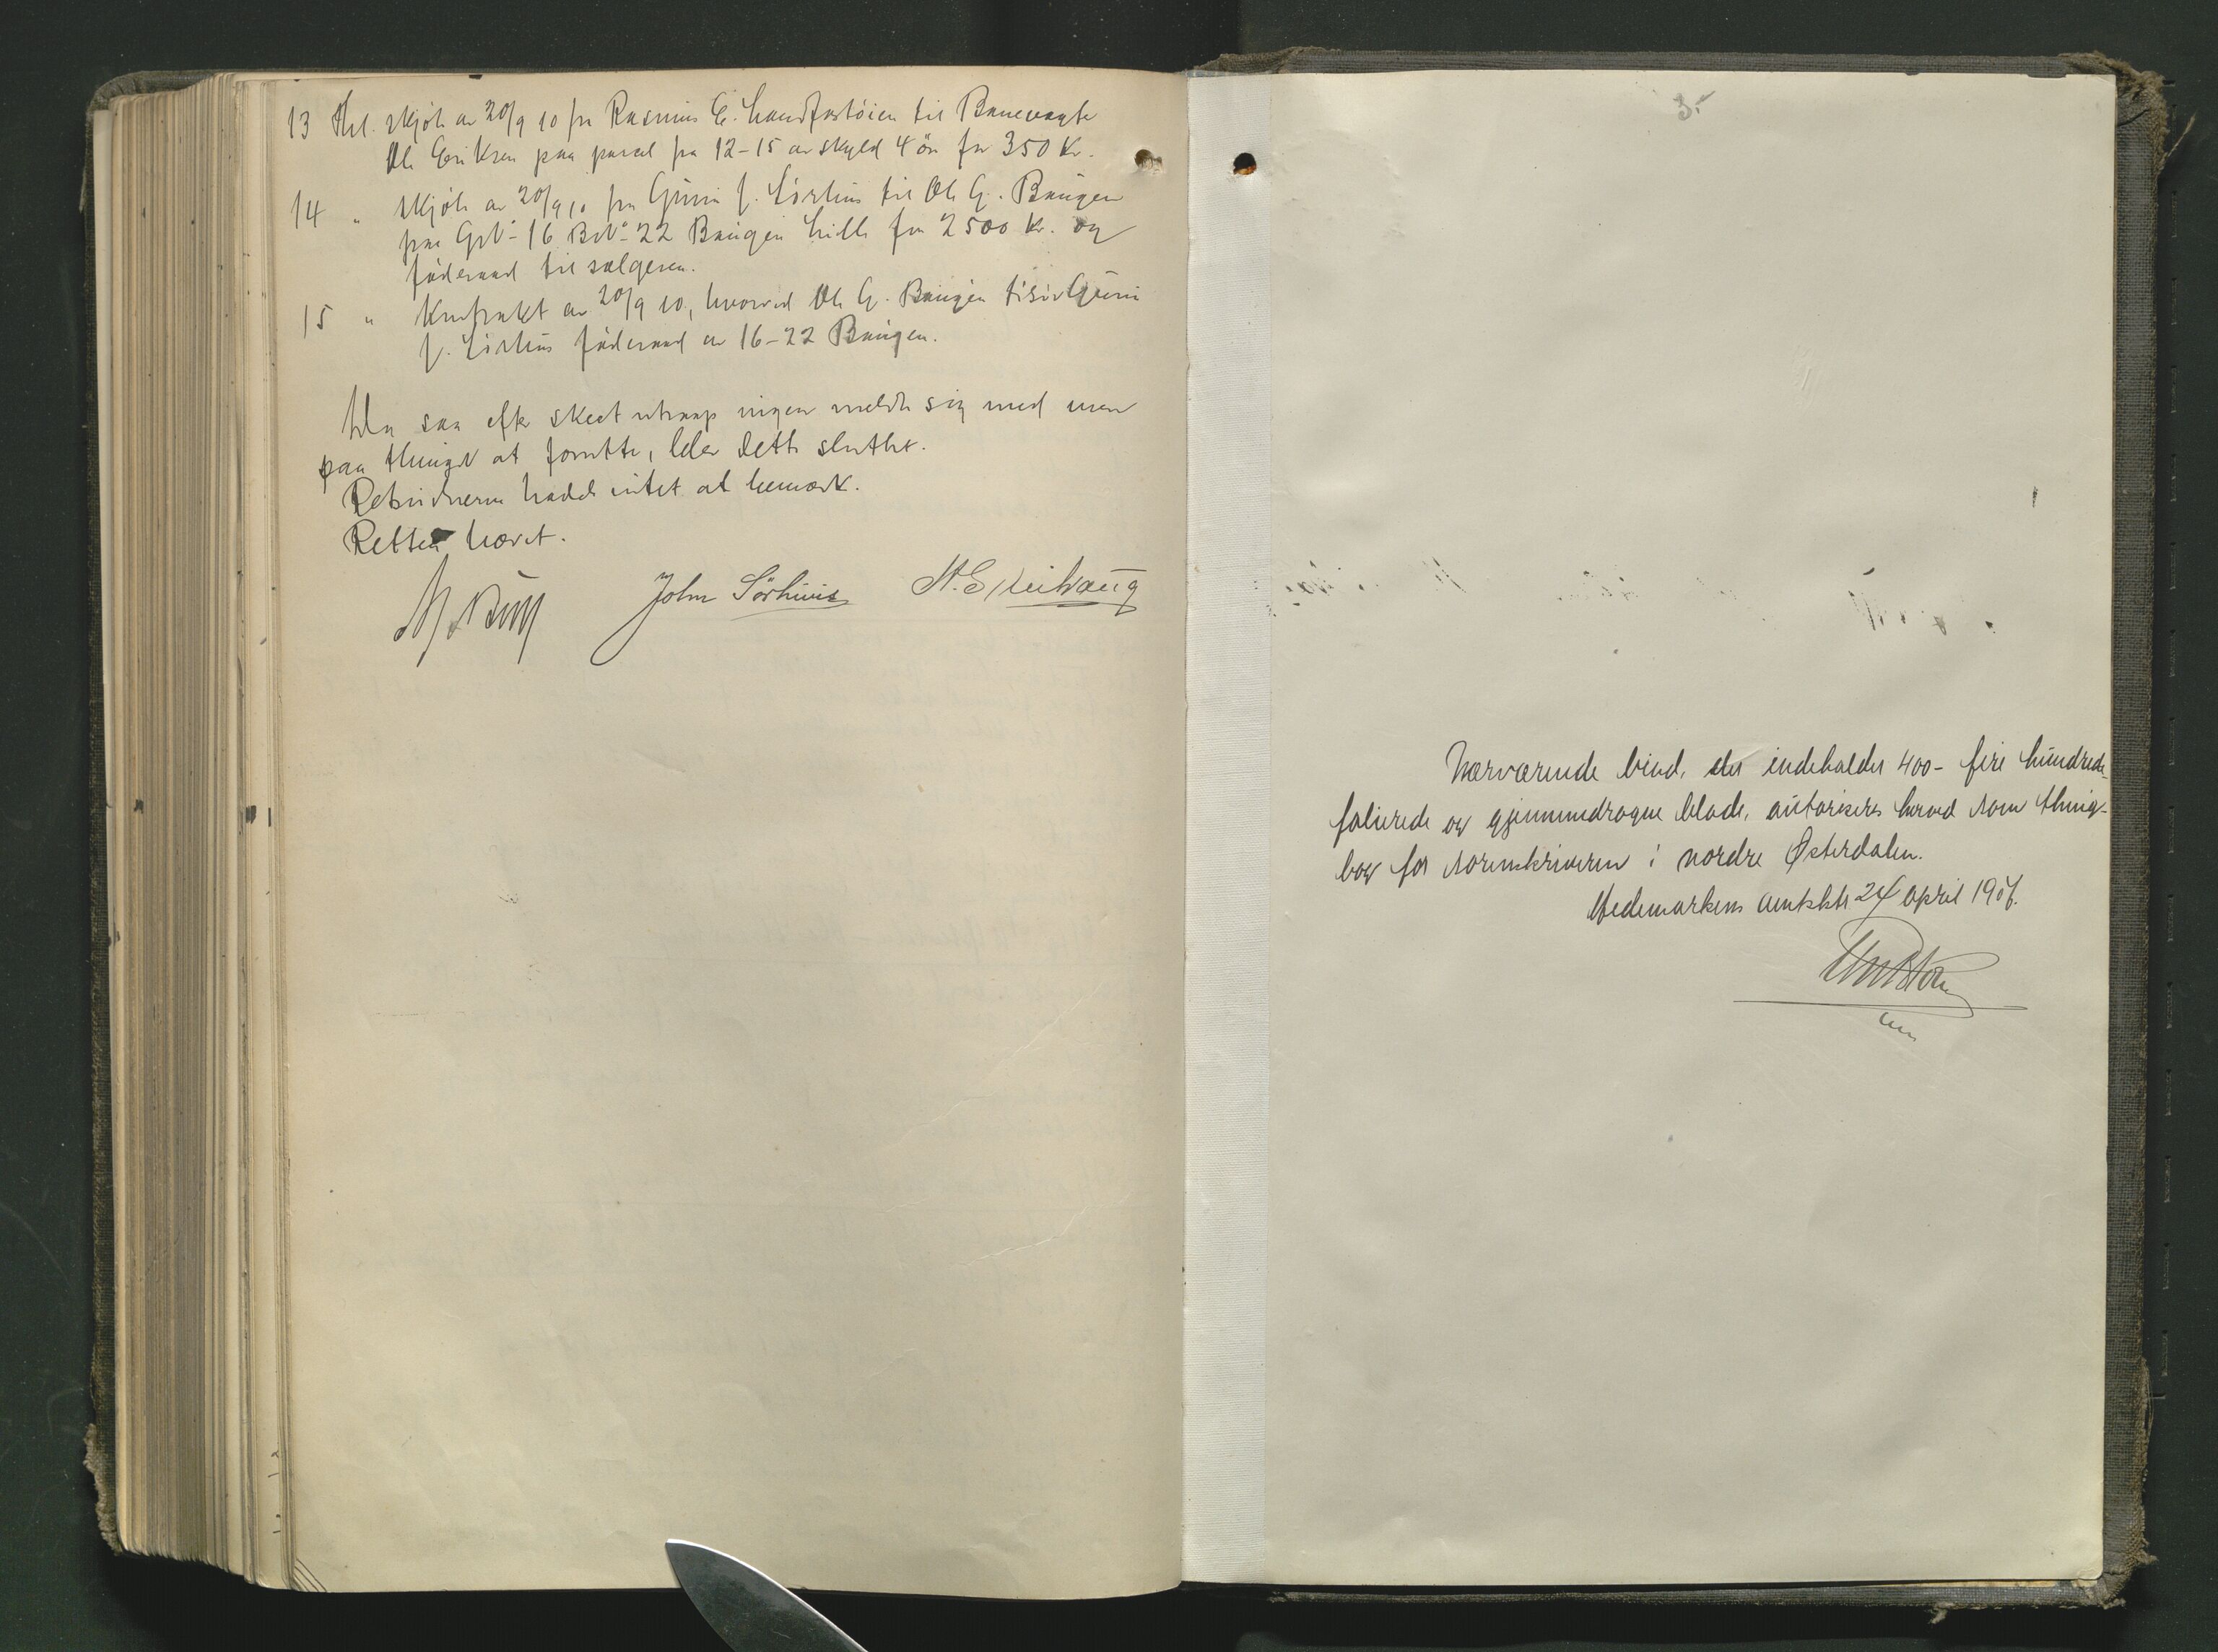 13 Thl. skjöte av 20/9 10 fra Rasmus E. Haudfastöien til Banevogte
Ole Eriksen paa parcel fra 12-15 av skyld 4 öre for 350 Kr.
14 " skjöte av 20/9 10 fra Guri J. Sörhus til Ole G. Baugen
paa Gr№ 16 Br№ 22 Baugen lille for 2500 Kr. og
föderaad til sælgeren.
15 " Kontrakt av 20/9 10, hvorved Ole G. Baugen tilsier Guri
J. Sörhus föderaad av 16-22 Baugen.
Da saa efter skeet utraap ingen meldte sig med mere
paa thinget at forrette, blev dette sluttet.
Retsvidnerne hadde intet at bemærke.
Retten hævet.
John Sörhuus
3.
Nærværende bind, der indeholder 400- fire hundrede
folierede og gjennemdragne blade, autoriseres herved som thing-
bog for sorenskriveren i nordre Østerdalen.
Hedemarkens amt 24 april 1907.